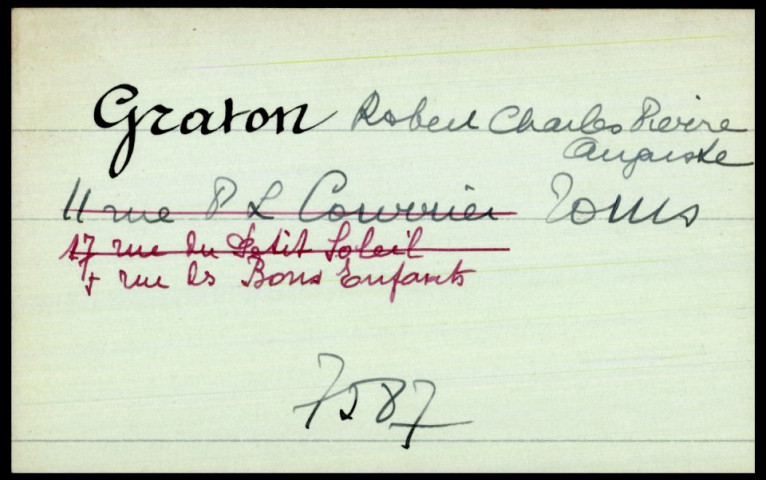 Graton Robert Charles Pierre
Auguste
11 rue P L Courrier Tours
17 rue du Petit Soleil
7 rue des Bons Enfants
7587